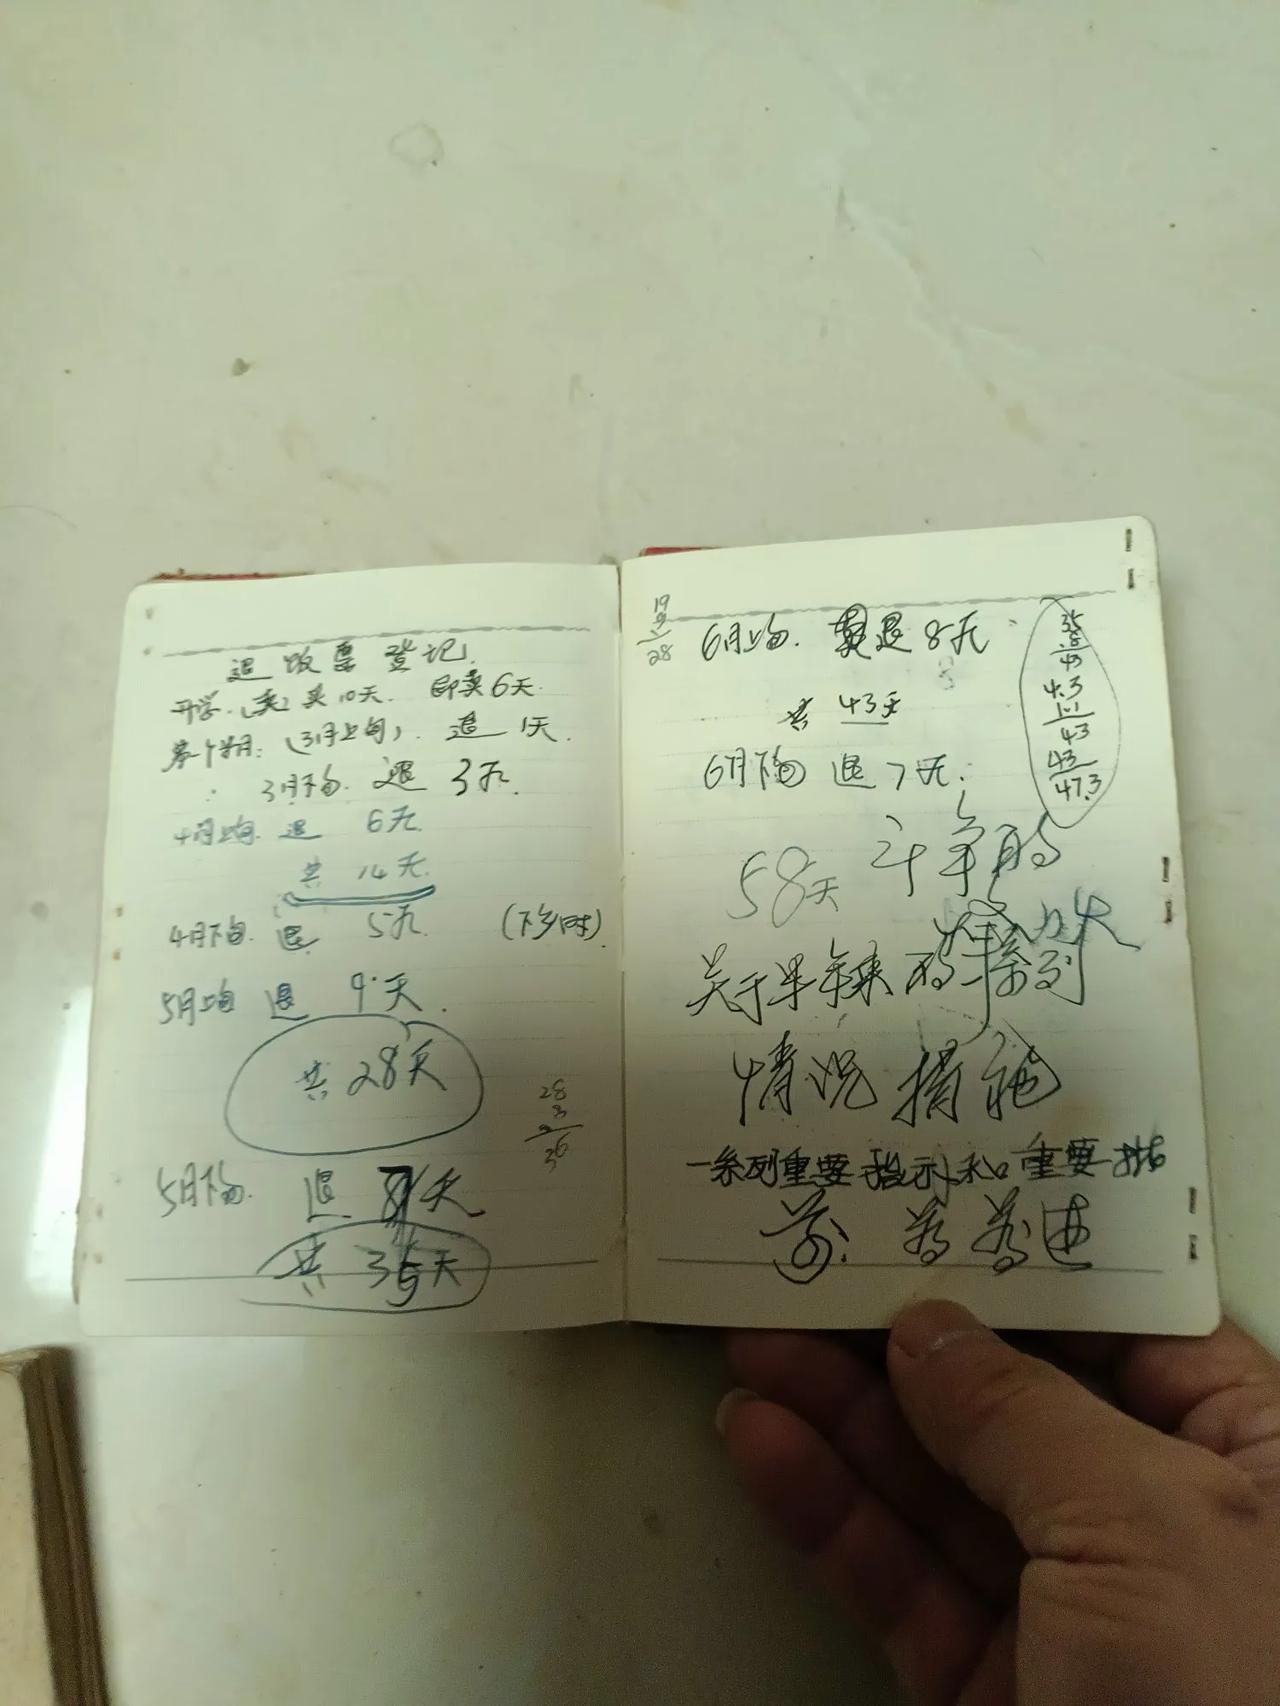 退饭票登记
开学.(卖)买10天. 即卖6天.
第一个半月:(3月上旬). 退 1天.
3月下旬. 退 3天.
4月上旬. 退 6天.
共 14天.
4月下旬. 退 5天. (下乡时)
5月上旬 退 9天.
共28天
28
8
36
5月下旬. 退 天
共 35天
19
9
28
6月上旬. 退8天
共 43天
6月下旬 退7天.
35
8
43
4.3
43
43
47.3
58天 斗争的
关于半年来的 系列
情况 措施
一系列重要指示和重要